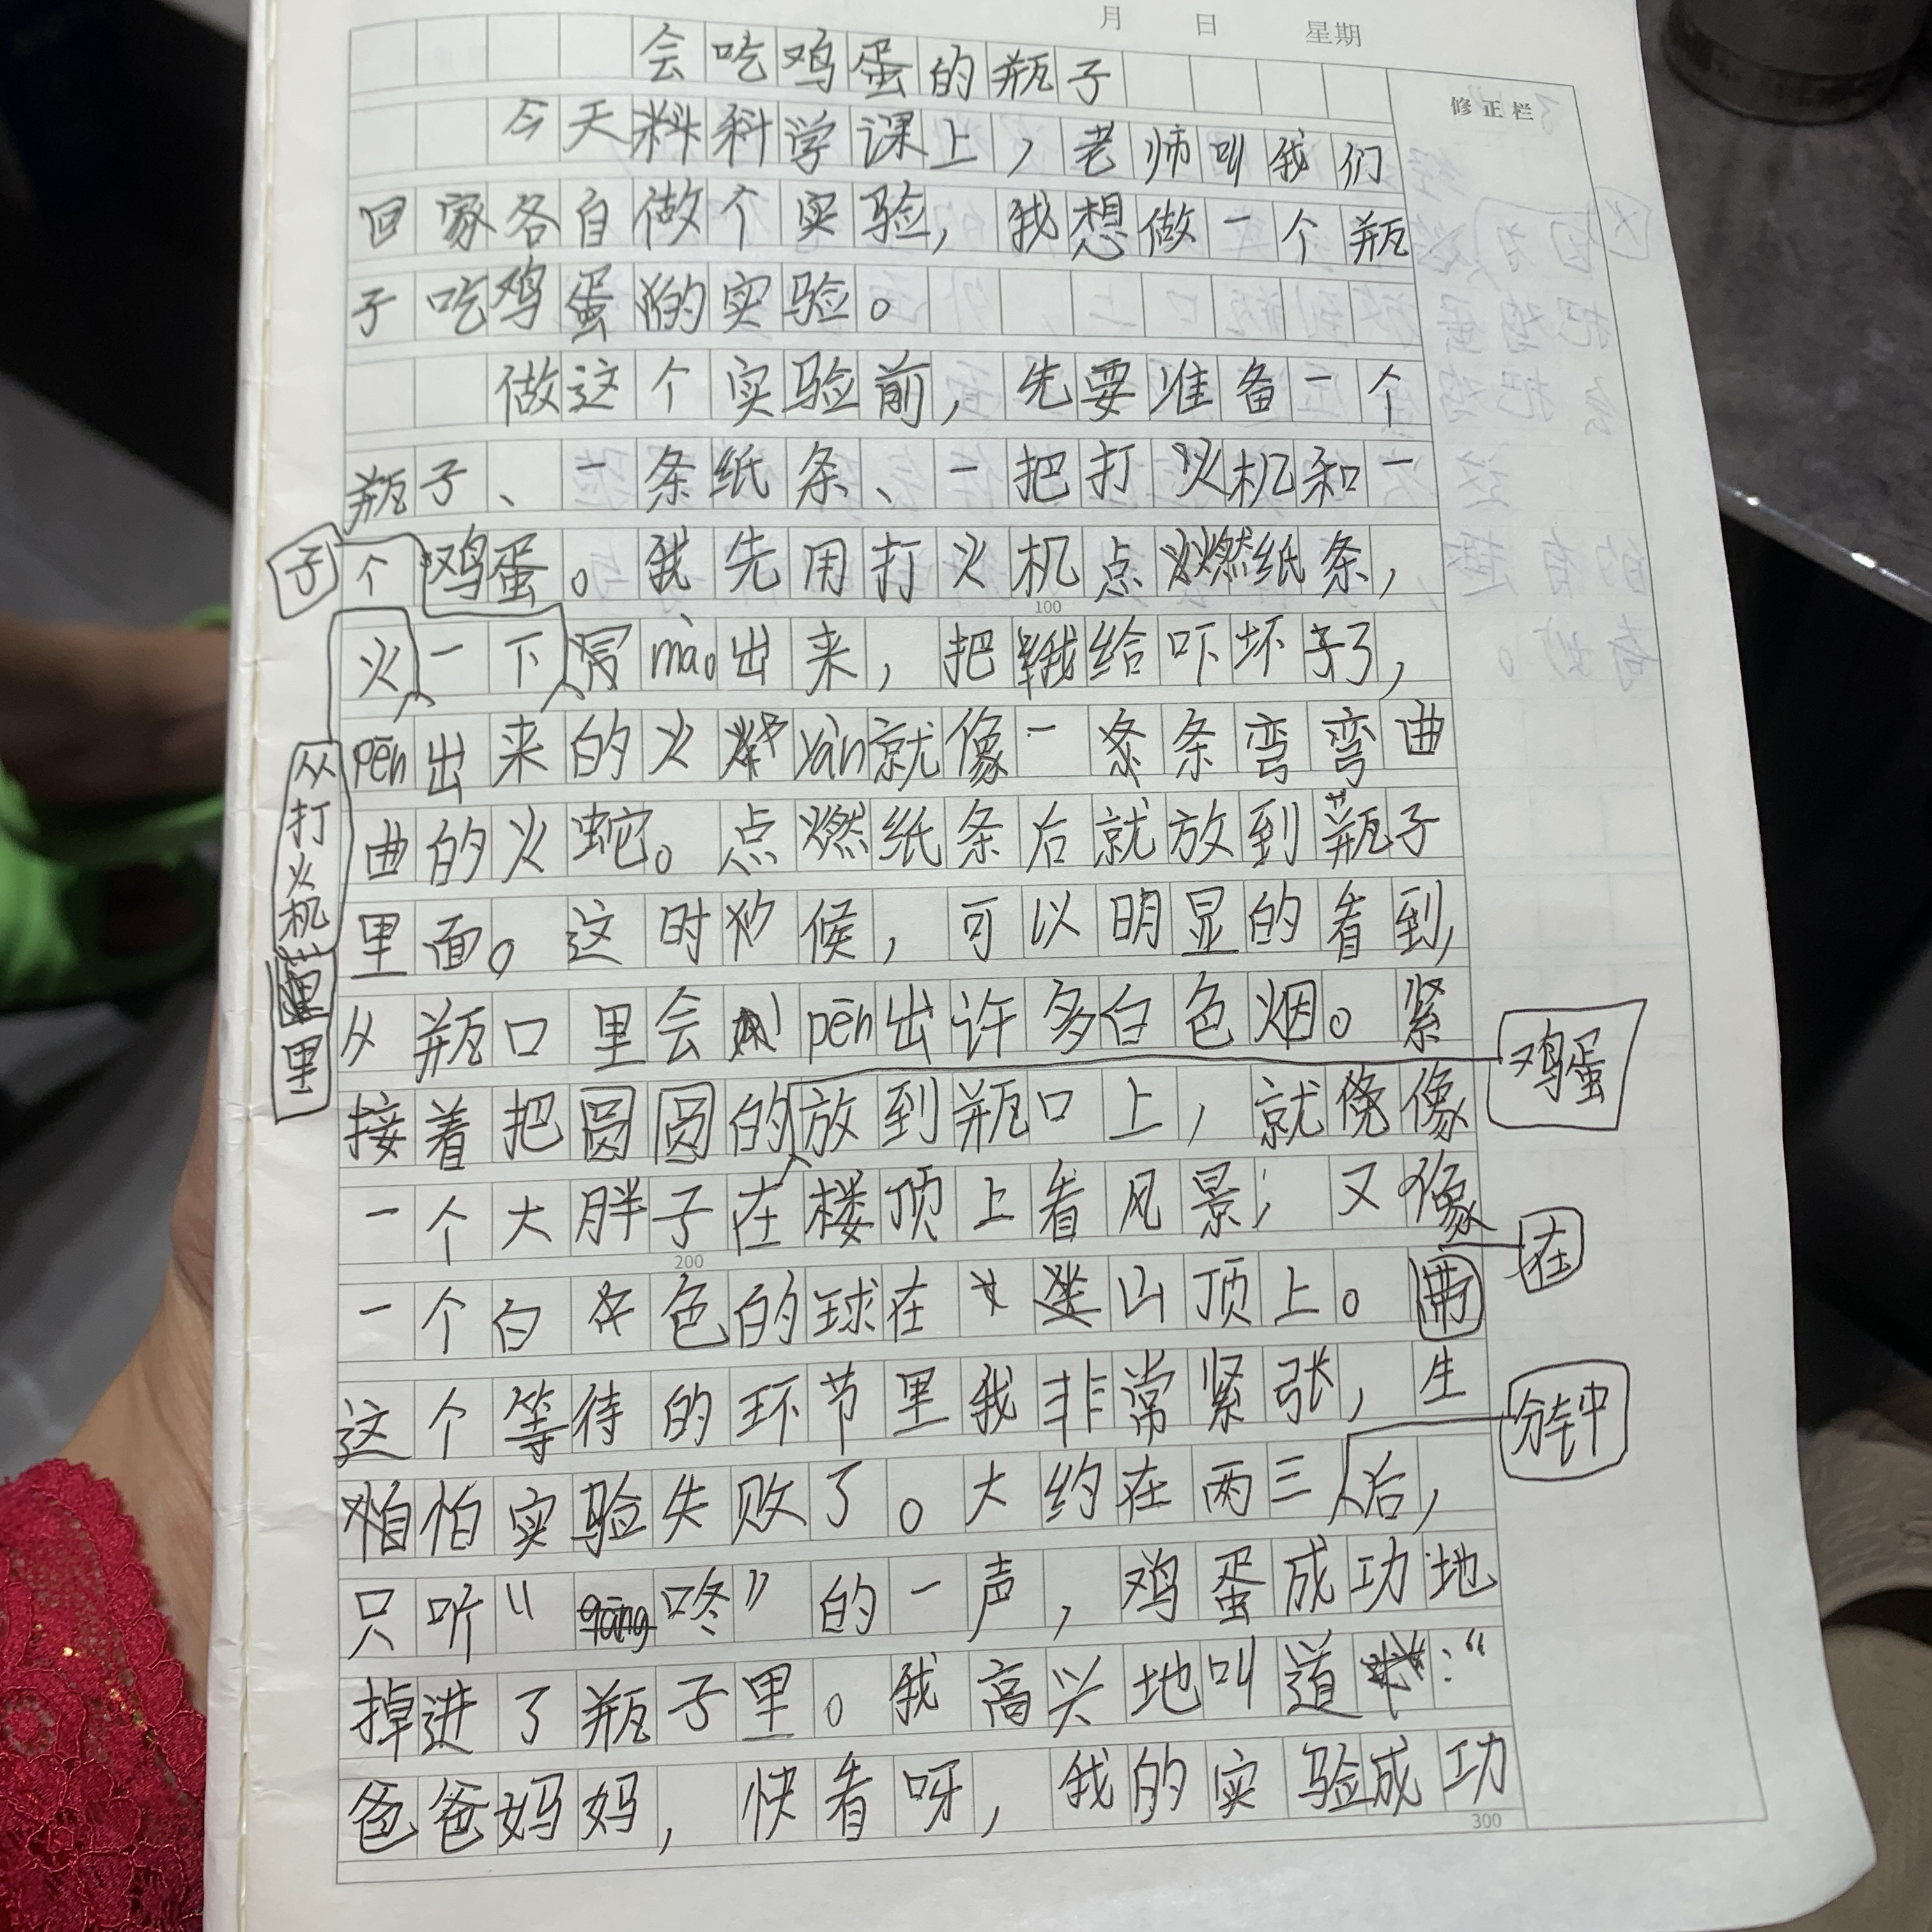 月 日 星期
会吃鸡蛋的瓶子
修正栏
今天科科学课上，老师叫我们
回家各自做个实验，我想做一个瓶
子吃鸡蛋的实验。
做这个实验前，先要准备一个
瓶子、一条纸条、一把打火机和一
子
个鸡蛋。我先用打火机点燃纸条，
100
火一下冒mào出来，把我给吓坏了，
从打火机里
pēn出来的火yàn就像一条条弯弯曲
曲的火蛇。点燃纸条后就放到瓶子
里面。这时候，可以明显的看到，
从瓶口里会pēn出许多白色烟。紧
鸡蛋
接着把圆圆的放到瓶口上，就像
一个大胖子在楼顶上看风景；又像
200
在
一个白色的球在山顶上。
这个等待的环节里我非常紧张，生
分钟
怕怕实验失败了。大约在两三后，
只听“咚”的一声，鸡蛋成功地
掉进了瓶子里。我高兴地叫道：“
爸爸妈妈，快看呀，我的实验成功
300